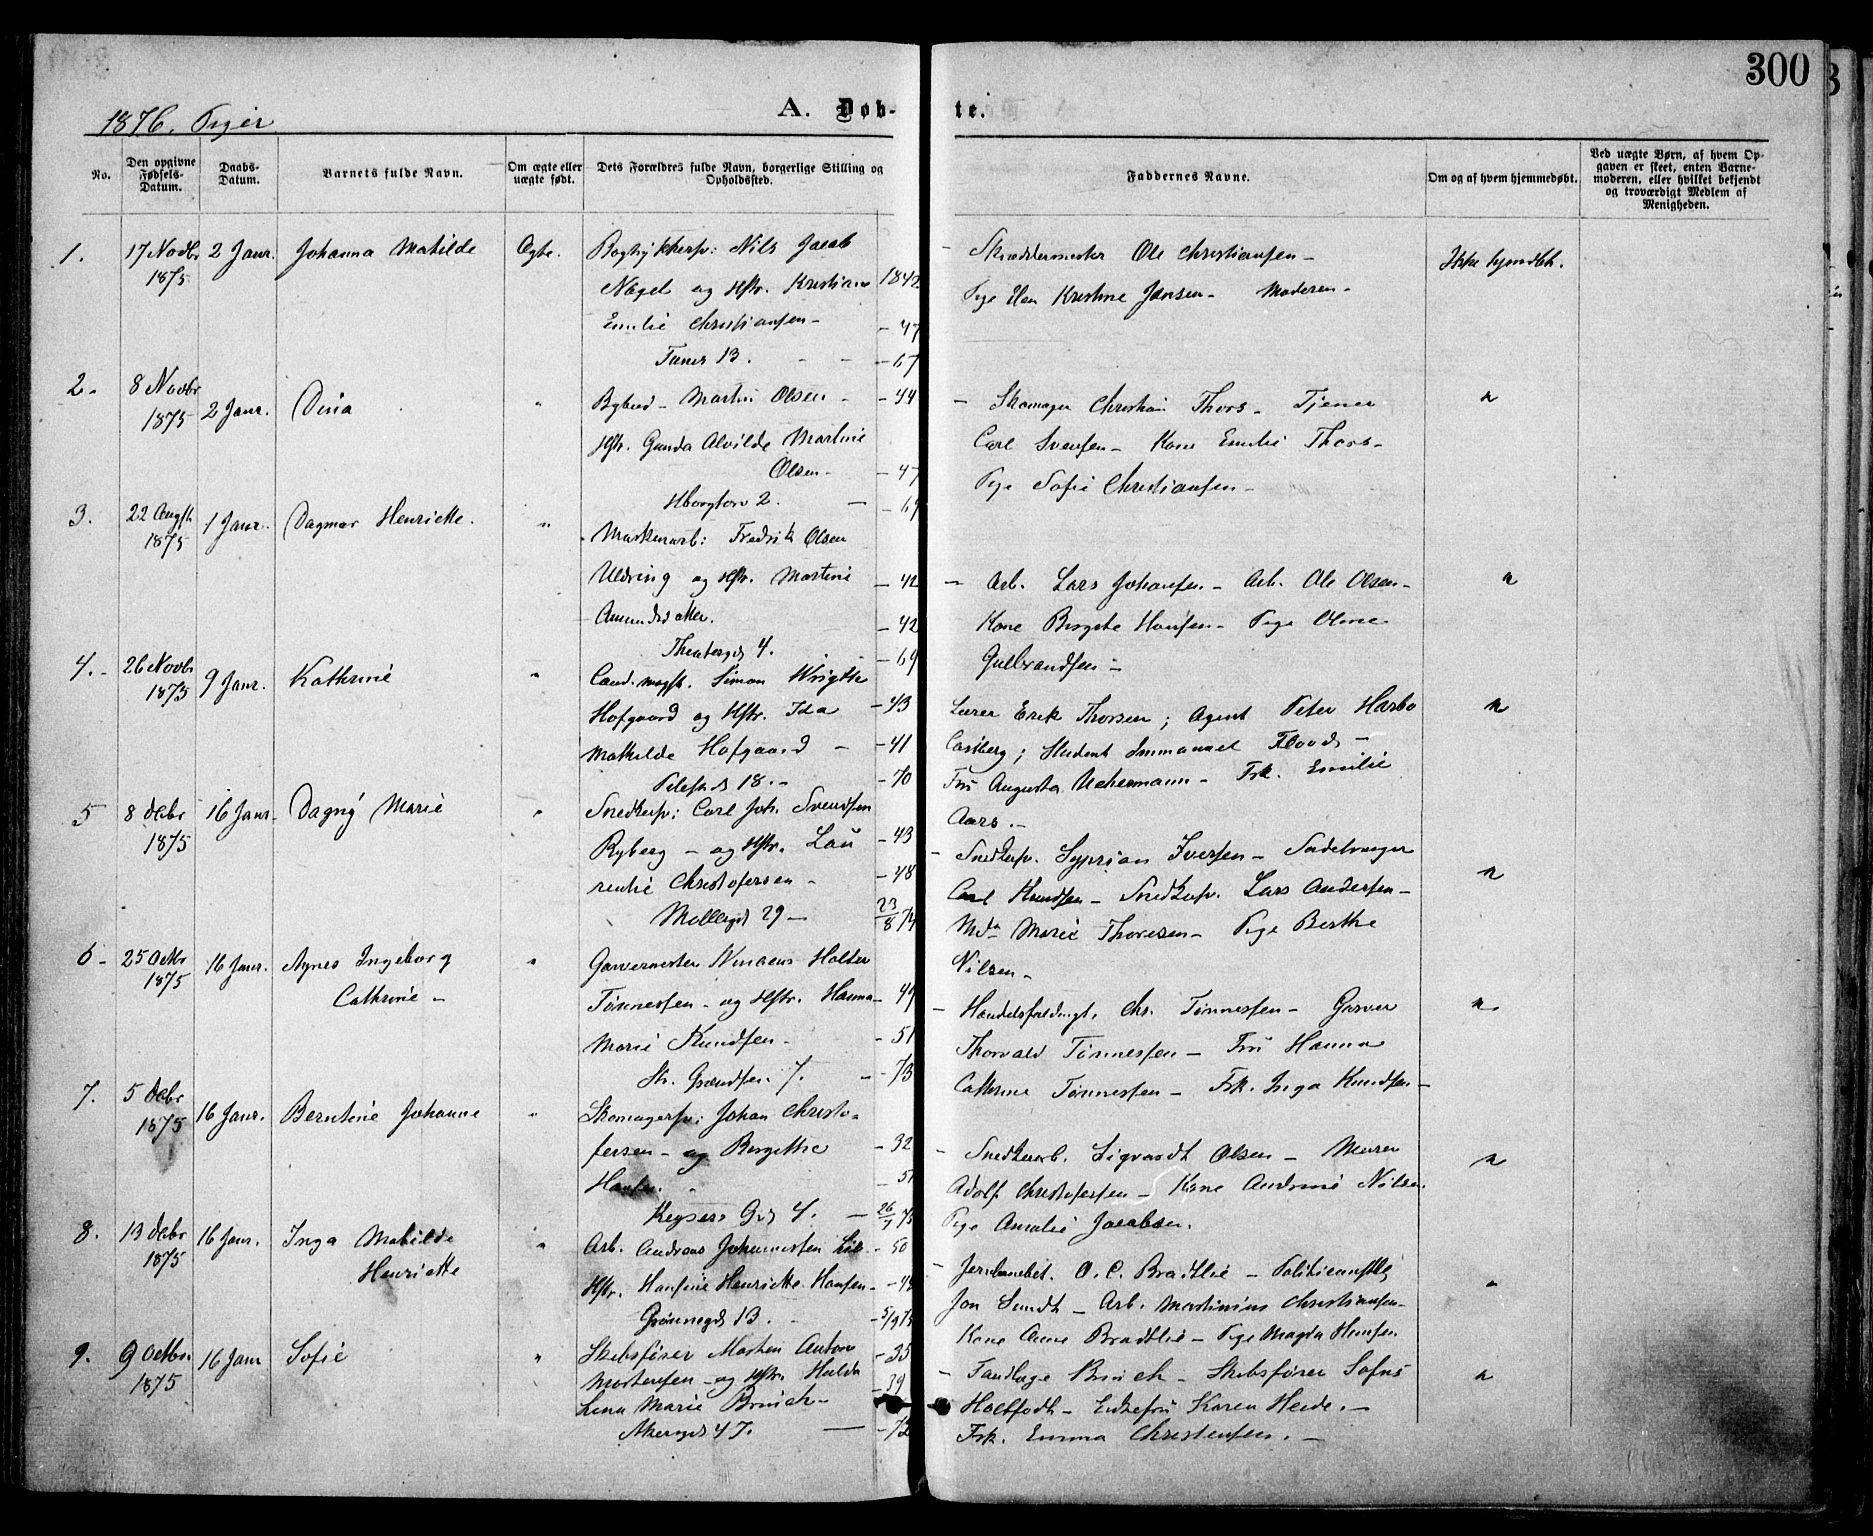 300
1876. Piger
A. Døbte.
No.
Den opgivne Fødsels-Datum.
Daabs-Datum.
Barnets fulde Navn.
Om ægte eller uægte født.
Dets Forældres fulde Navn, borgerlige Stilling og Opholdssted.
Faddernes Navne.
Om og af hvem hjemmedøbt.
Ved uægte Børn, af hvem Opgaven er skeet, enten Barnemoderen, eller hvilket bekjendt og troværdigt Medlem af Menigheden.
1. 17 Novbr 1875 2 Janr. Johanna Matilde Ægte.
Nils Jacob
Nagel og Hstr. Kristiane 1842
Emilie Christiansen - 47
13. - 67
Skræddermester Ole Christiansen -
Pige Kristine Jansen - Moderen -
Ikke hjmdbt.
2. 8 Novbr 1875 2 Janr. Dina "
Bybud - Martin Olsen - 44
Hstr. Gunda Alvilde Martine
Olsen - 47
2. - 69
Skomager Christian Thors - Tjener
Carl Svensen - Kone Emilie Thors -
Pige Sofie Christiansen -
"
3. 22 Augst 1875 1 Janr. Dagmar Henriette. "
Fredrik Olsen
og Hstr. Martine - 42
Amundsdatter. - 42
Theatergd 4. - 69
Arb. Lars Johansen - Arb. Ole Olsen -
Kone Birgite Hansen - Pige Oline
Gulbrandsen -
"
4. - 26 Novbr 1875 9 Janr. Kathrine "
Cand. mag. Simon Wrigth
Hofgaard og Hstr. Ida - 43
Mathilde Hofgaard - - 41
Pilestd 18. - - 70
Lærer Erik Thorsen ; Agent Peter Harbo
Castberg ; Student Immanuel Flood -
Fru Augusta Uchermann - Frk. Emilie
Aars. -
"
5 8 Decbr 1875 16 Janr. Dagny Marie "
Snedkersv: Carl Joh. Svendsen
Ryberg - og Hstr. Lau - 43
rentie Christofersen - - 48
Møllegd 29 - 23/8 74
Snedkersv. Syprian Iversen - Sadelmager
Carl Knudsen - Snedkersv. Lars Andersen -
Mda Marie Thoresen - Pige Berthe
Nilsen -
"
6 - 25 Octbr 1875 16 Janr. Agnes Ingeborg "
Cathrine -
Garvermester Holter
Tønnessen - og Hstr. Hanna - 49
Marie Knudsen - - 51
St. Grændsen 7. - 73
Handelsfuldmgt. Chr. Tønnessen - Garver
Thorvald Tønnessen - Fru Hanna
Cathrine Tønnessen - Frk. Inga Knudsen -
"
7. 5 Decbr 1875 16 Janr. Berntine Johanne "
Skomagersv: Johan Christo-
fersen - og Birgitthe - 32
Hansen. - 51
Keysers Gd 4. - 26/7 75
Snedkerarb. Sigvardt Olsen - Murer
Adolf Christofersen - Kone Andrine Nilsen
Pige Amalie Jacobsen.
"
8. 13 Decbr 1875 16 Janr. Inga Matilde "
Henriette
Arb. Andreas Johannessen - 50
Hstr. Hansine Henriette Hansen -
Grønnegd 13. -
Jernbanebet. O. C. Bradtlie -
Jon Sundt - Arb. Martinius Christiansen -
Kone Anne Bradtlie - Pige Magda Hansen
"
9. 9 Octbr 1875 16 Janr Sofie "
Skibsfører Morten Anton - 35
Mortensen - og Hstr. Hulda - 39
Lena Marie Brinch -
Akersgd 47. - 72
Tandlæge Brinch - Skibsfører Sofus
Holtfodt - Enkefru Karen Heide. -
Frk. Emma Christensen. -
"